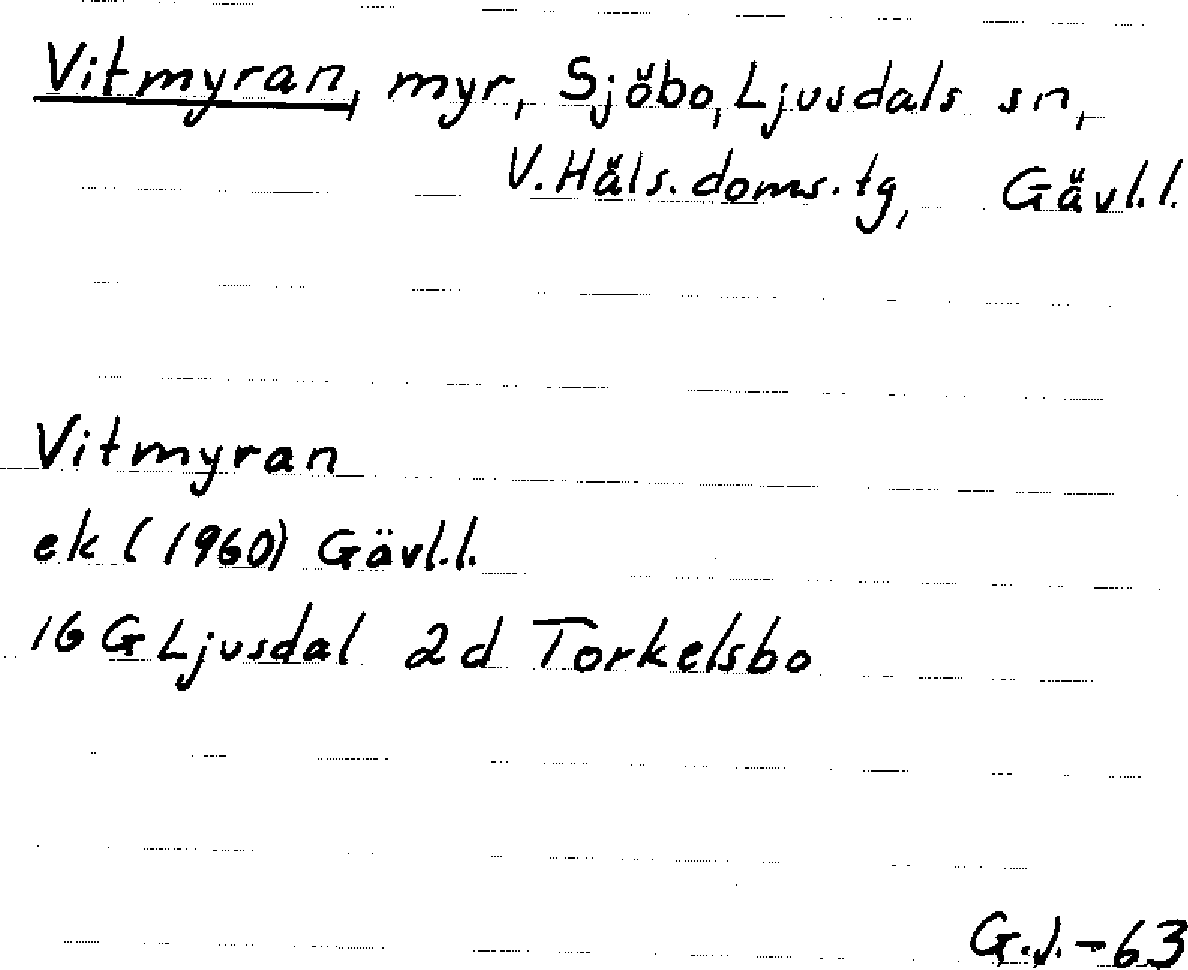 Vitmyran, myr, Sjöbo, Ljusdals sn,
V. Häls. doms. tg, Gävl.l.
Vitmyran
ek (1960) Gävl.l.
16 G Ljusdal 2d Torkelsbo
G.J.-63